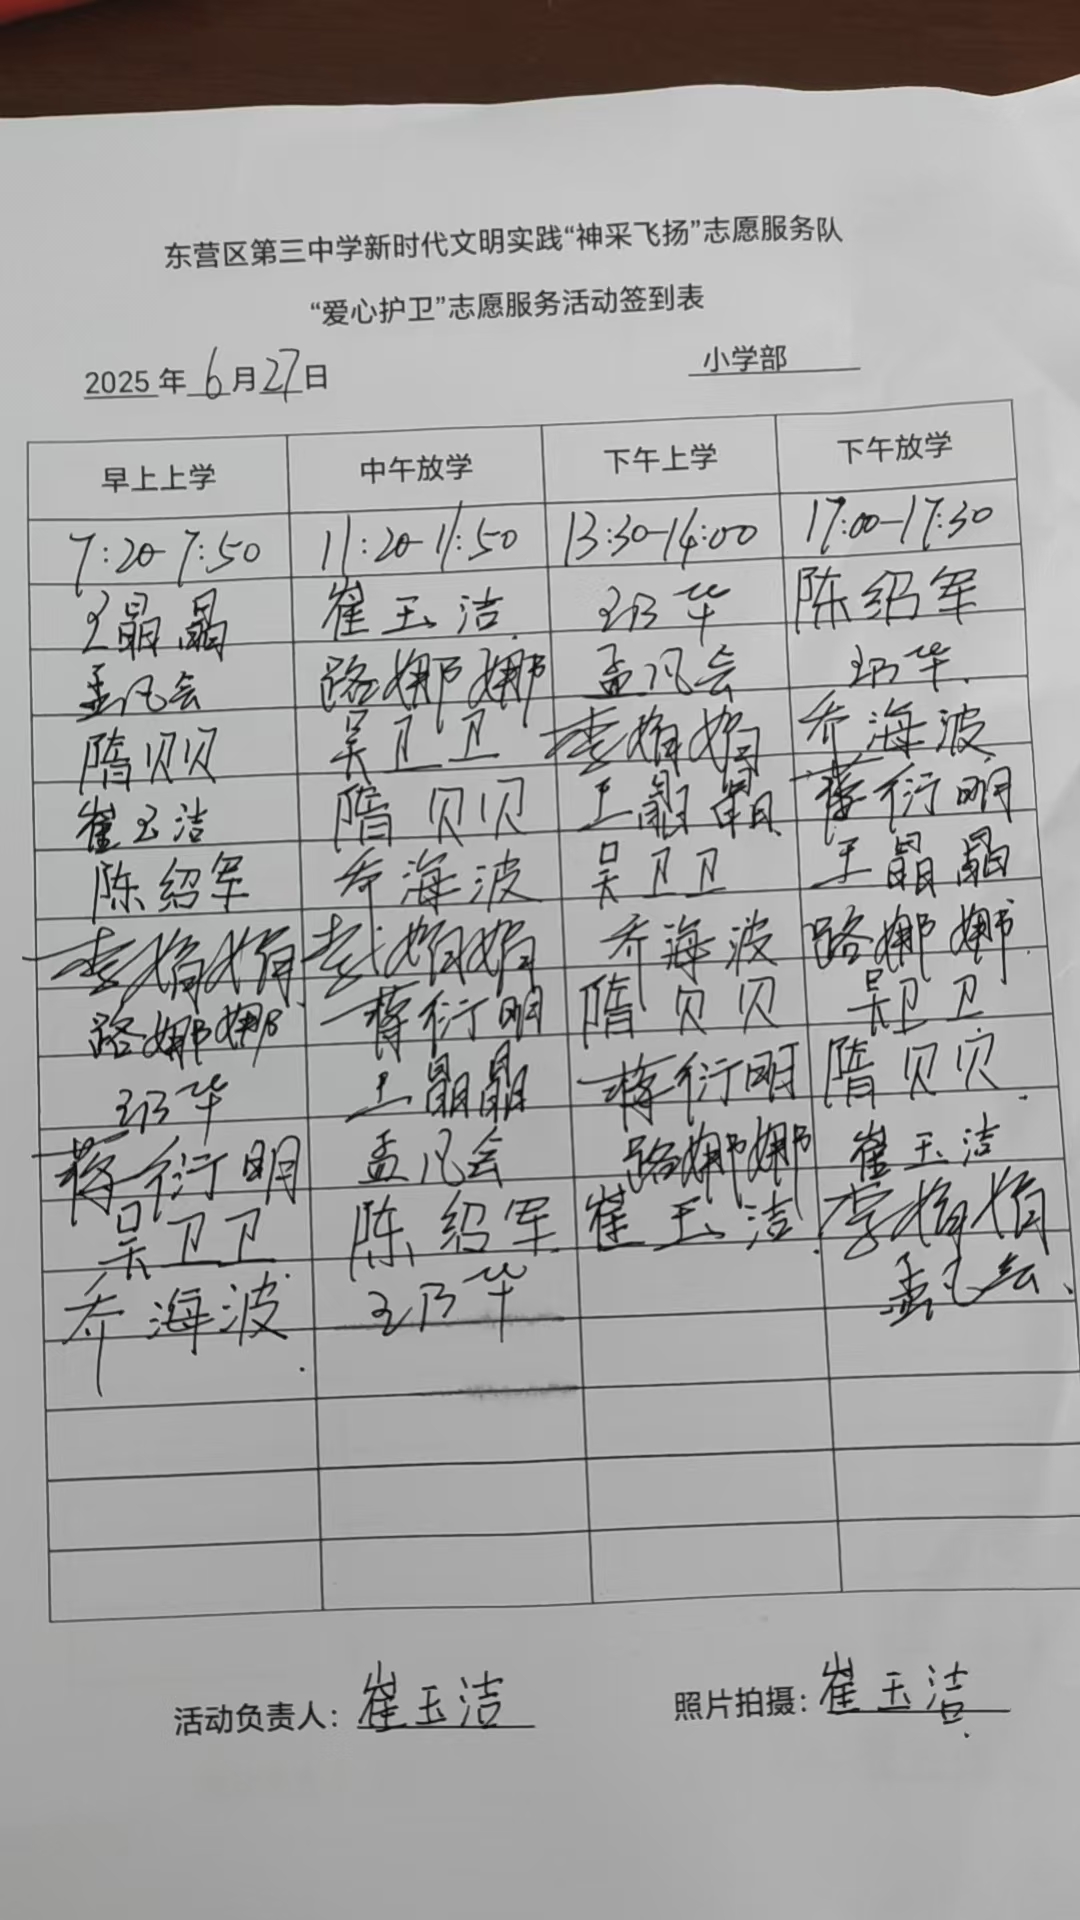 东营区第三中学新时代文明实践“神采飞扬”志愿服务队
“爱心护卫”志愿服务活动签到表
2025年6月27日 小学部
早上上学 中午放学 下午上学 下午放学
7:20-7:50 11:20-11:50 13:30-14:00 17:00-17:30
王晶晶 崔玉洁 王乃华 陈绍军
孟凡会 路娜娜 孟凡会 王乃华
隋贝贝 吴卫卫 李娟娟 乔海波
崔玉洁 隋贝贝 王晶晶 蒋衍明
陈绍军 乔海波 吴卫卫 王晶晶
李娟娟 李娟娟 乔海波 路娜娜
路娜娜 蒋衍明 隋贝贝 吴卫卫
王乃华 王晶晶 蒋衍明 隋贝贝
蒋衍明 孟凡会 路娜娜 崔玉洁
吴卫卫 陈绍军 崔玉洁 李娟娟
乔海波 王乃华 孟凡会
活动负责人：崔玉洁 照片拍摄：崔玉洁